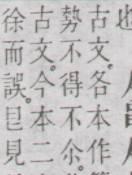 也
古文。各本作
勢不得不尒。
古文。今本二
徐而誤。㠯見